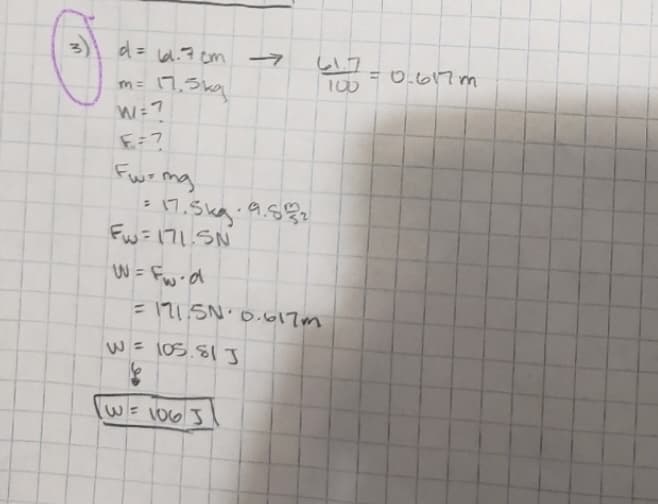 3) d = 61.7 cm → 61.7/100 = 0.617 m
m = 17.5 kg
W = ?
F = ?
Fw = mg
= 17.5 kg · 9.8 m/s²
Fw = 171.5 N
W = Fw · d
= 171.5 N · 0.617 m
W = 105.81 J
W = 106 J